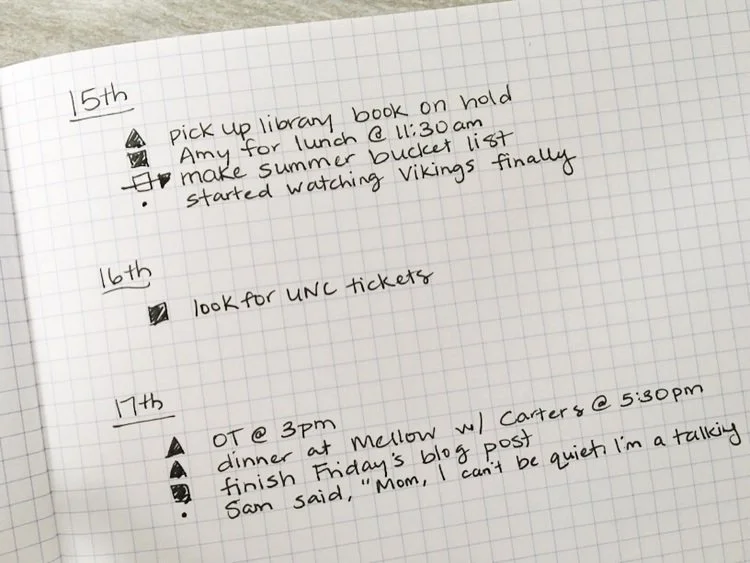 15th
pick up library book on hold
Amy for lunch @ 11:30am
make summer bucket list
started watching Vikings finally
16th
look for UNC tickets
17th
OT @ 3pm
dinner at Mellow w/ Carters @ 5:30pm
finish Friday's blog post
Sam said, "Mom, I can't be quiet, I'm a talkiy